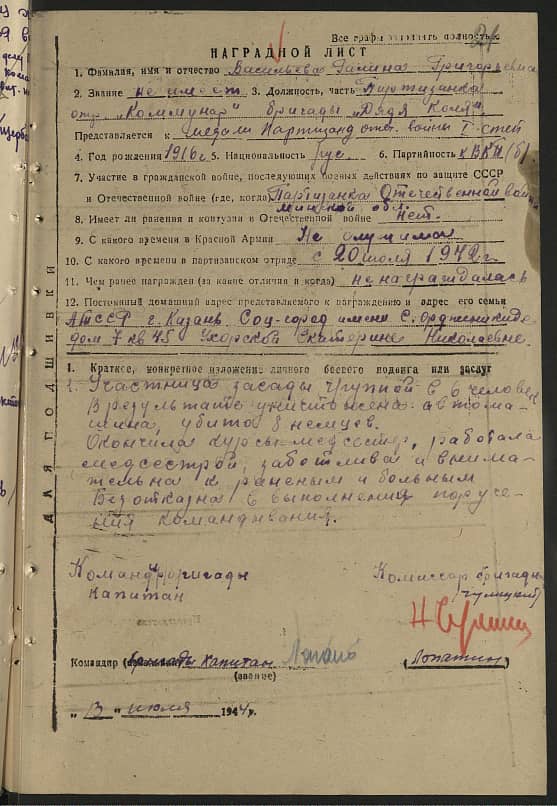 Все графы заполнять полностью
21
НАГРАДНОЙ ЛИСТ
1. Фамилия, имя и отчество Васильева Галина Григорьевна
2. Звание не имеет 3. Должность, часть Партизанка
отр. „Коммунар" бригады „Дядя Коля"
Представляется к медали Партизану отеч. войны I степ
4. Год рождения 1916 г 5. Национальность Рус. 6. Партийность ВКП(б)
7. Участие в гражданской войне, последующих боевых действиях по защите СССР
и Отечественной войне (где, когда) Партизанка Отечественной войны
Минской обл.
8. Имеет ли ранения и контузии в Отечественной войне нет.
9. С какого времени в Красной Армии Не служила
10. С какого времени в партизанском отряде с 20 июля 1942 г.
11. Чем ранее награжден (за какие отличия и когда) не награждалась
12. Постоянный домашний адрес представляемого к награждению и адрес его семьи
АТССР г. Казань Соц-город имени С. Орджоникидзе
дом 7 кв 45 Ухорской Екатерине Николаевне.
I. Краткое, конкретное изложение личного боевого подвига или заслуг
1. Участница засады группой в 6 человек
В результате уничтожена автома-
шина, убито 8 немцев.
Окончила курсы медсестер, работала
медсестрой, заботлива и внима-
тельна к раненым и больным
Безотказна в выполнения поруче-
ния командования.
Командир бригады
Капитан
Комиссар бригады
Командир бригады Капитан
(Лопатин)
(звание)
„13" июля 1944 г.
ДЛЯ ПОДШИВКИ